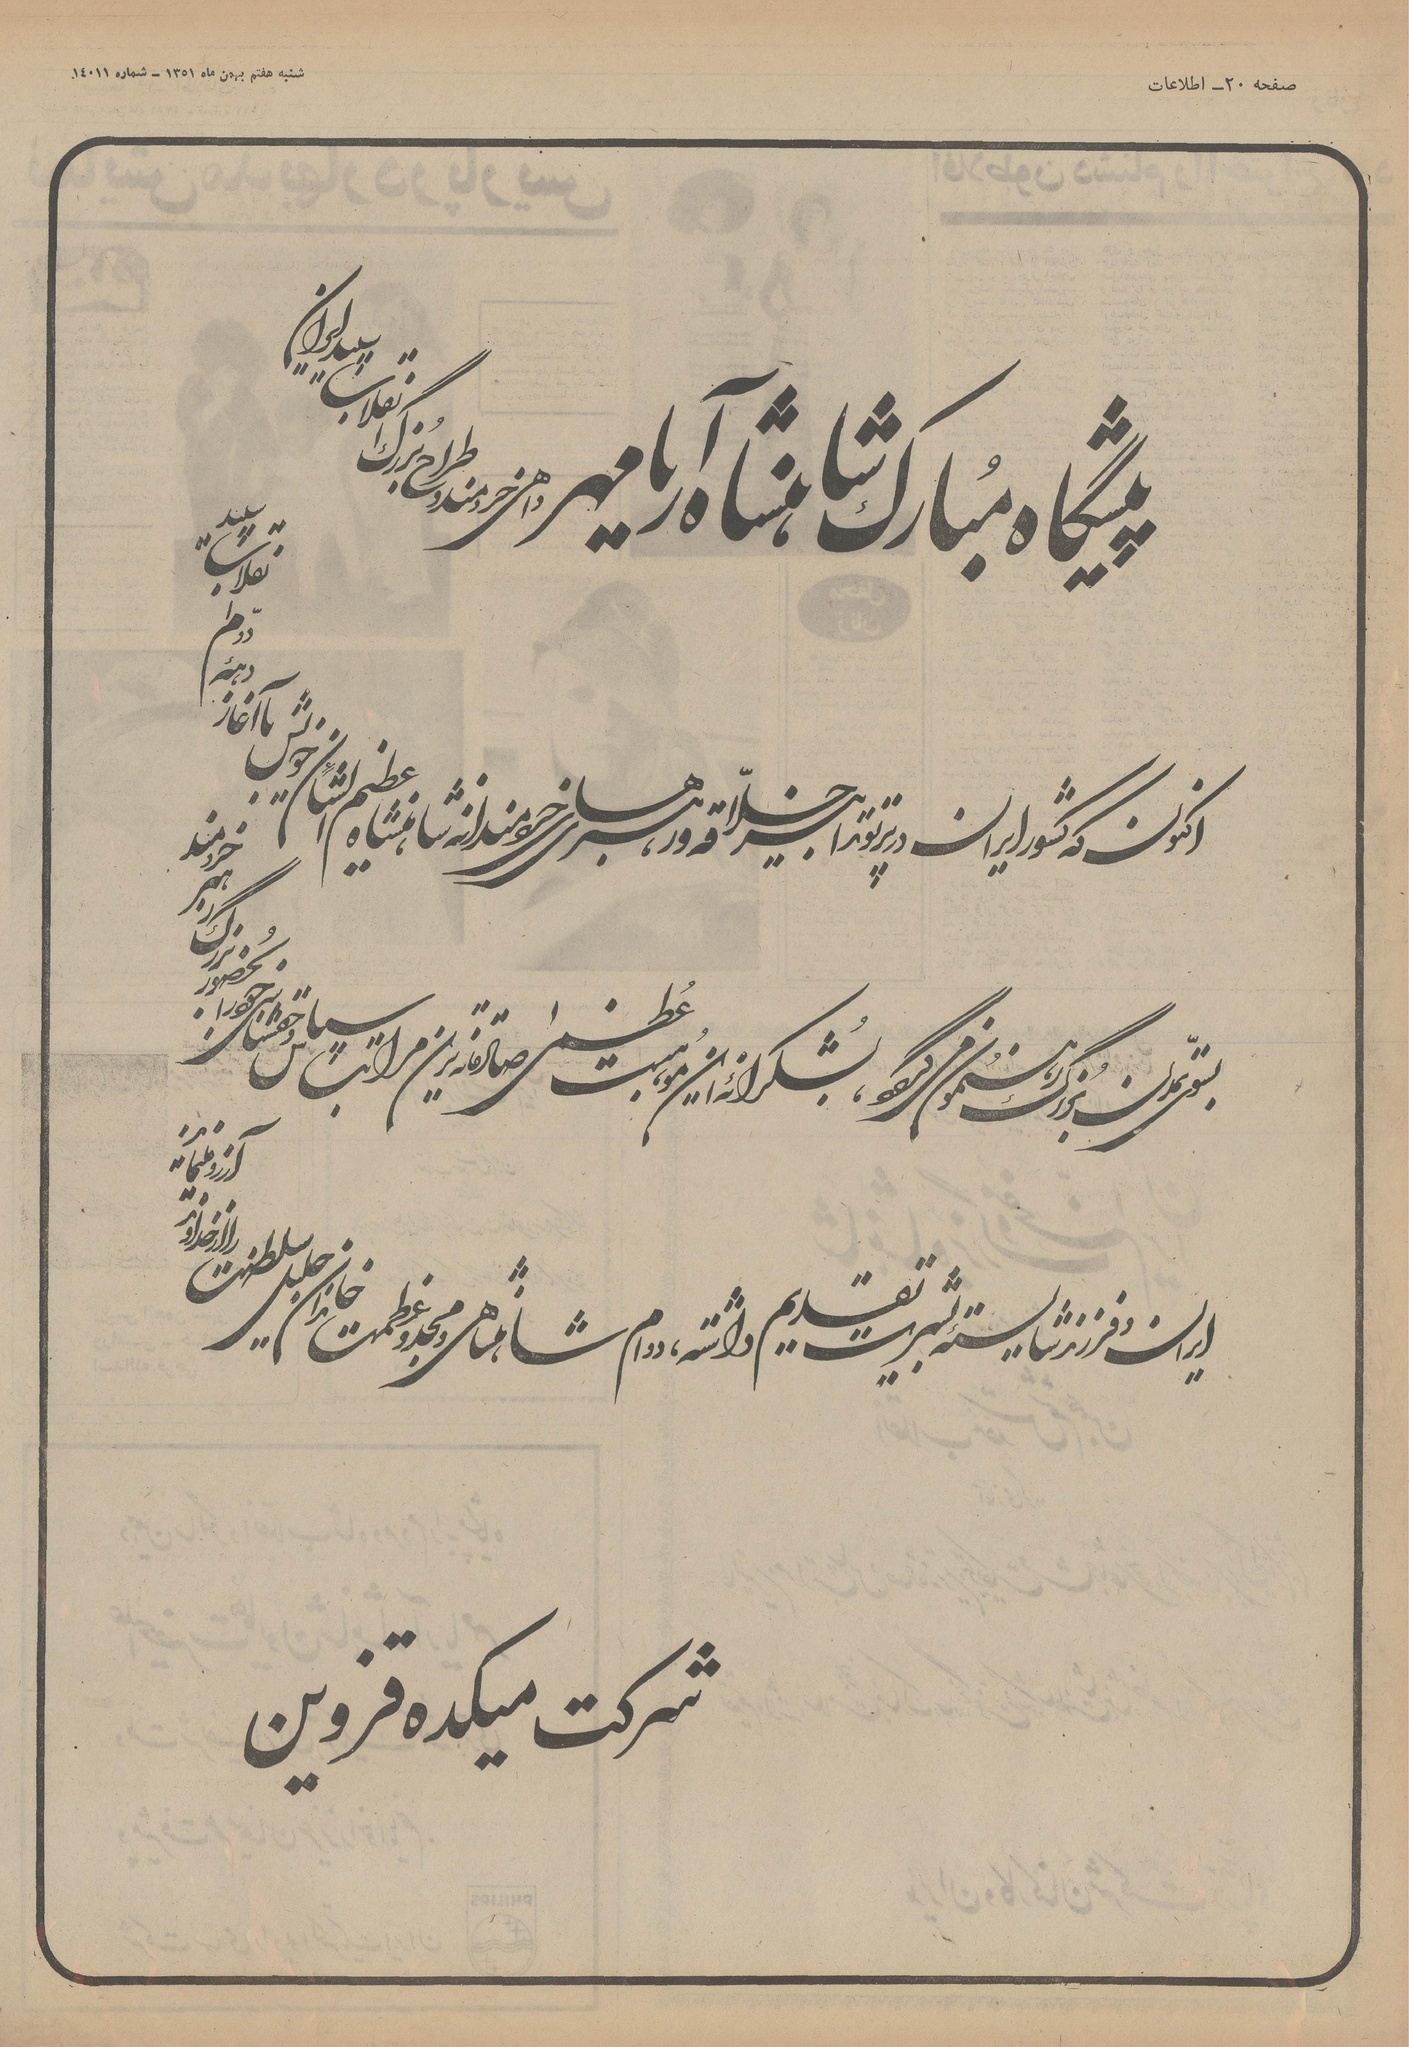 صفحه ۲۰ـ اطلاعات
شنبه هفتم بهمن ماه ۱۳۵۱ ـ شماره ۱۴۰۱۱
پیشگاه مبارک شاهنشاه آریامهر داهی خردمند و طراح بزرگ انقلاب سپید ایران
اکنون که کشور ایران در پرتو تدابیر خلاقه و رهبری‌های خردمندانه شاهنشاه عظیم الشأن خویش با آغاز دههٔ دوم انقلاب سپید
بسوی تمدن بزرگ رهنمون می‌گردد، بشکرانهٔ این موهبت عظمی صادقانه‌ترین مراتب سپاس و حقشناسی خود را بحضور رهبر بزرگ خردمند
ایران و فرزند شایسته بشریت تقدیم داشته، دوام شاهنشاهی و مجد و عظمت خاندان جلیل سلطنت را از خداوند آرزومندیم
شرکت میکده قزوین